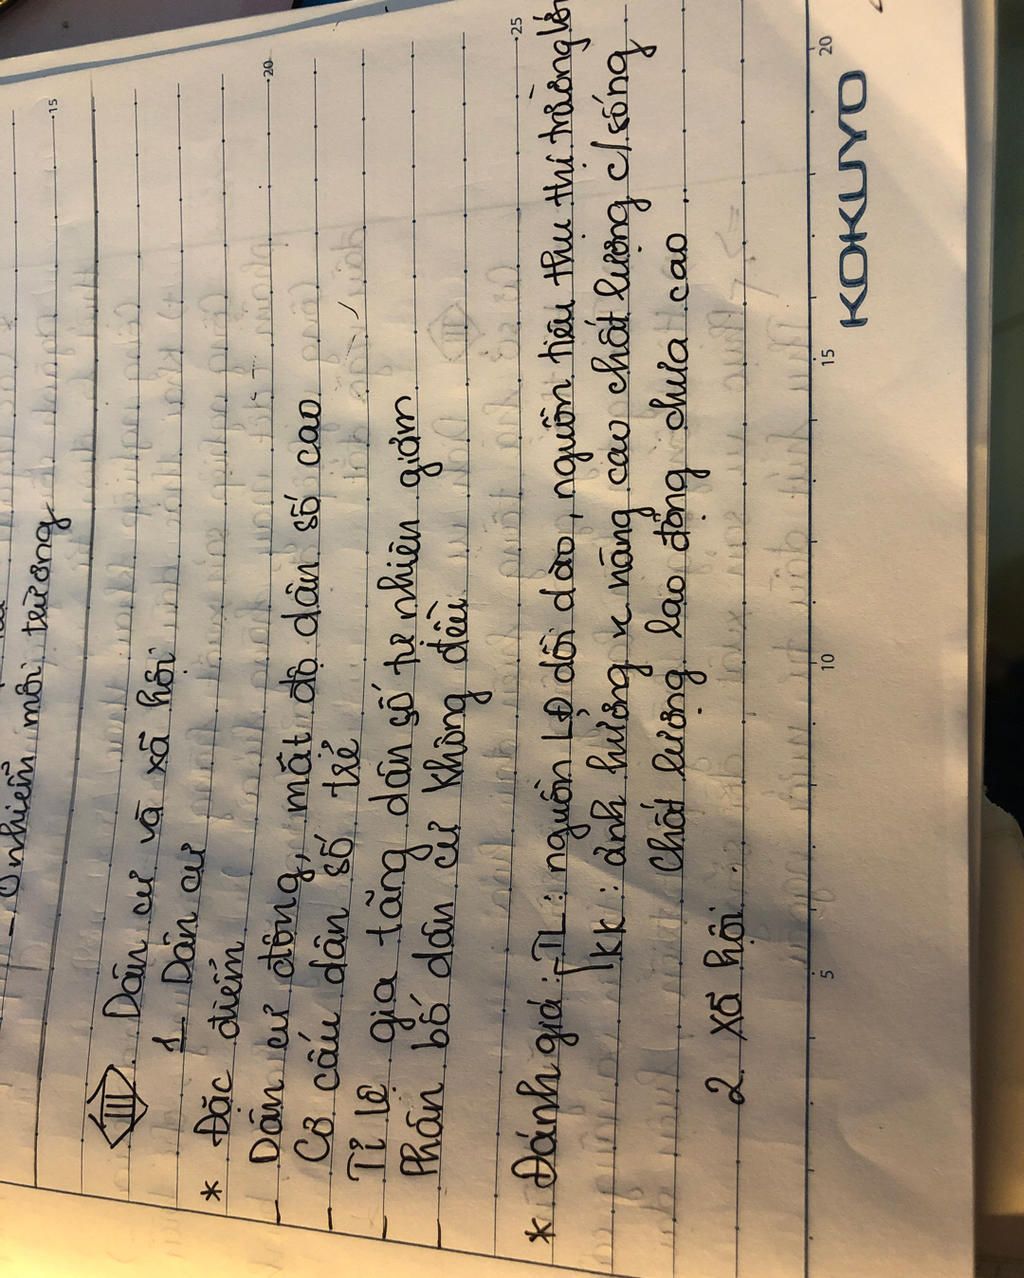 - Ô nhiễm môi trường
III. Dân cư và xã hội
1. Dân cư
* Đặc điểm
- Dân cư đông, mật độ dân số cao
- Cơ cấu dân số trẻ
- Tỉ lệ gia tăng dân số tự nhiên giảm
- Phân bố dân cư không đều
* Đánh giá: TL: nguồn LĐ dồi dào, nguồn tiêu thụ thị trường lớn
KK: ảnh hưởng nâng cao chất lượng c/sống
Chất lượng lao động chưa cao
2. Xã hội.
15
20
25
5
10
15
20
KOKUYO